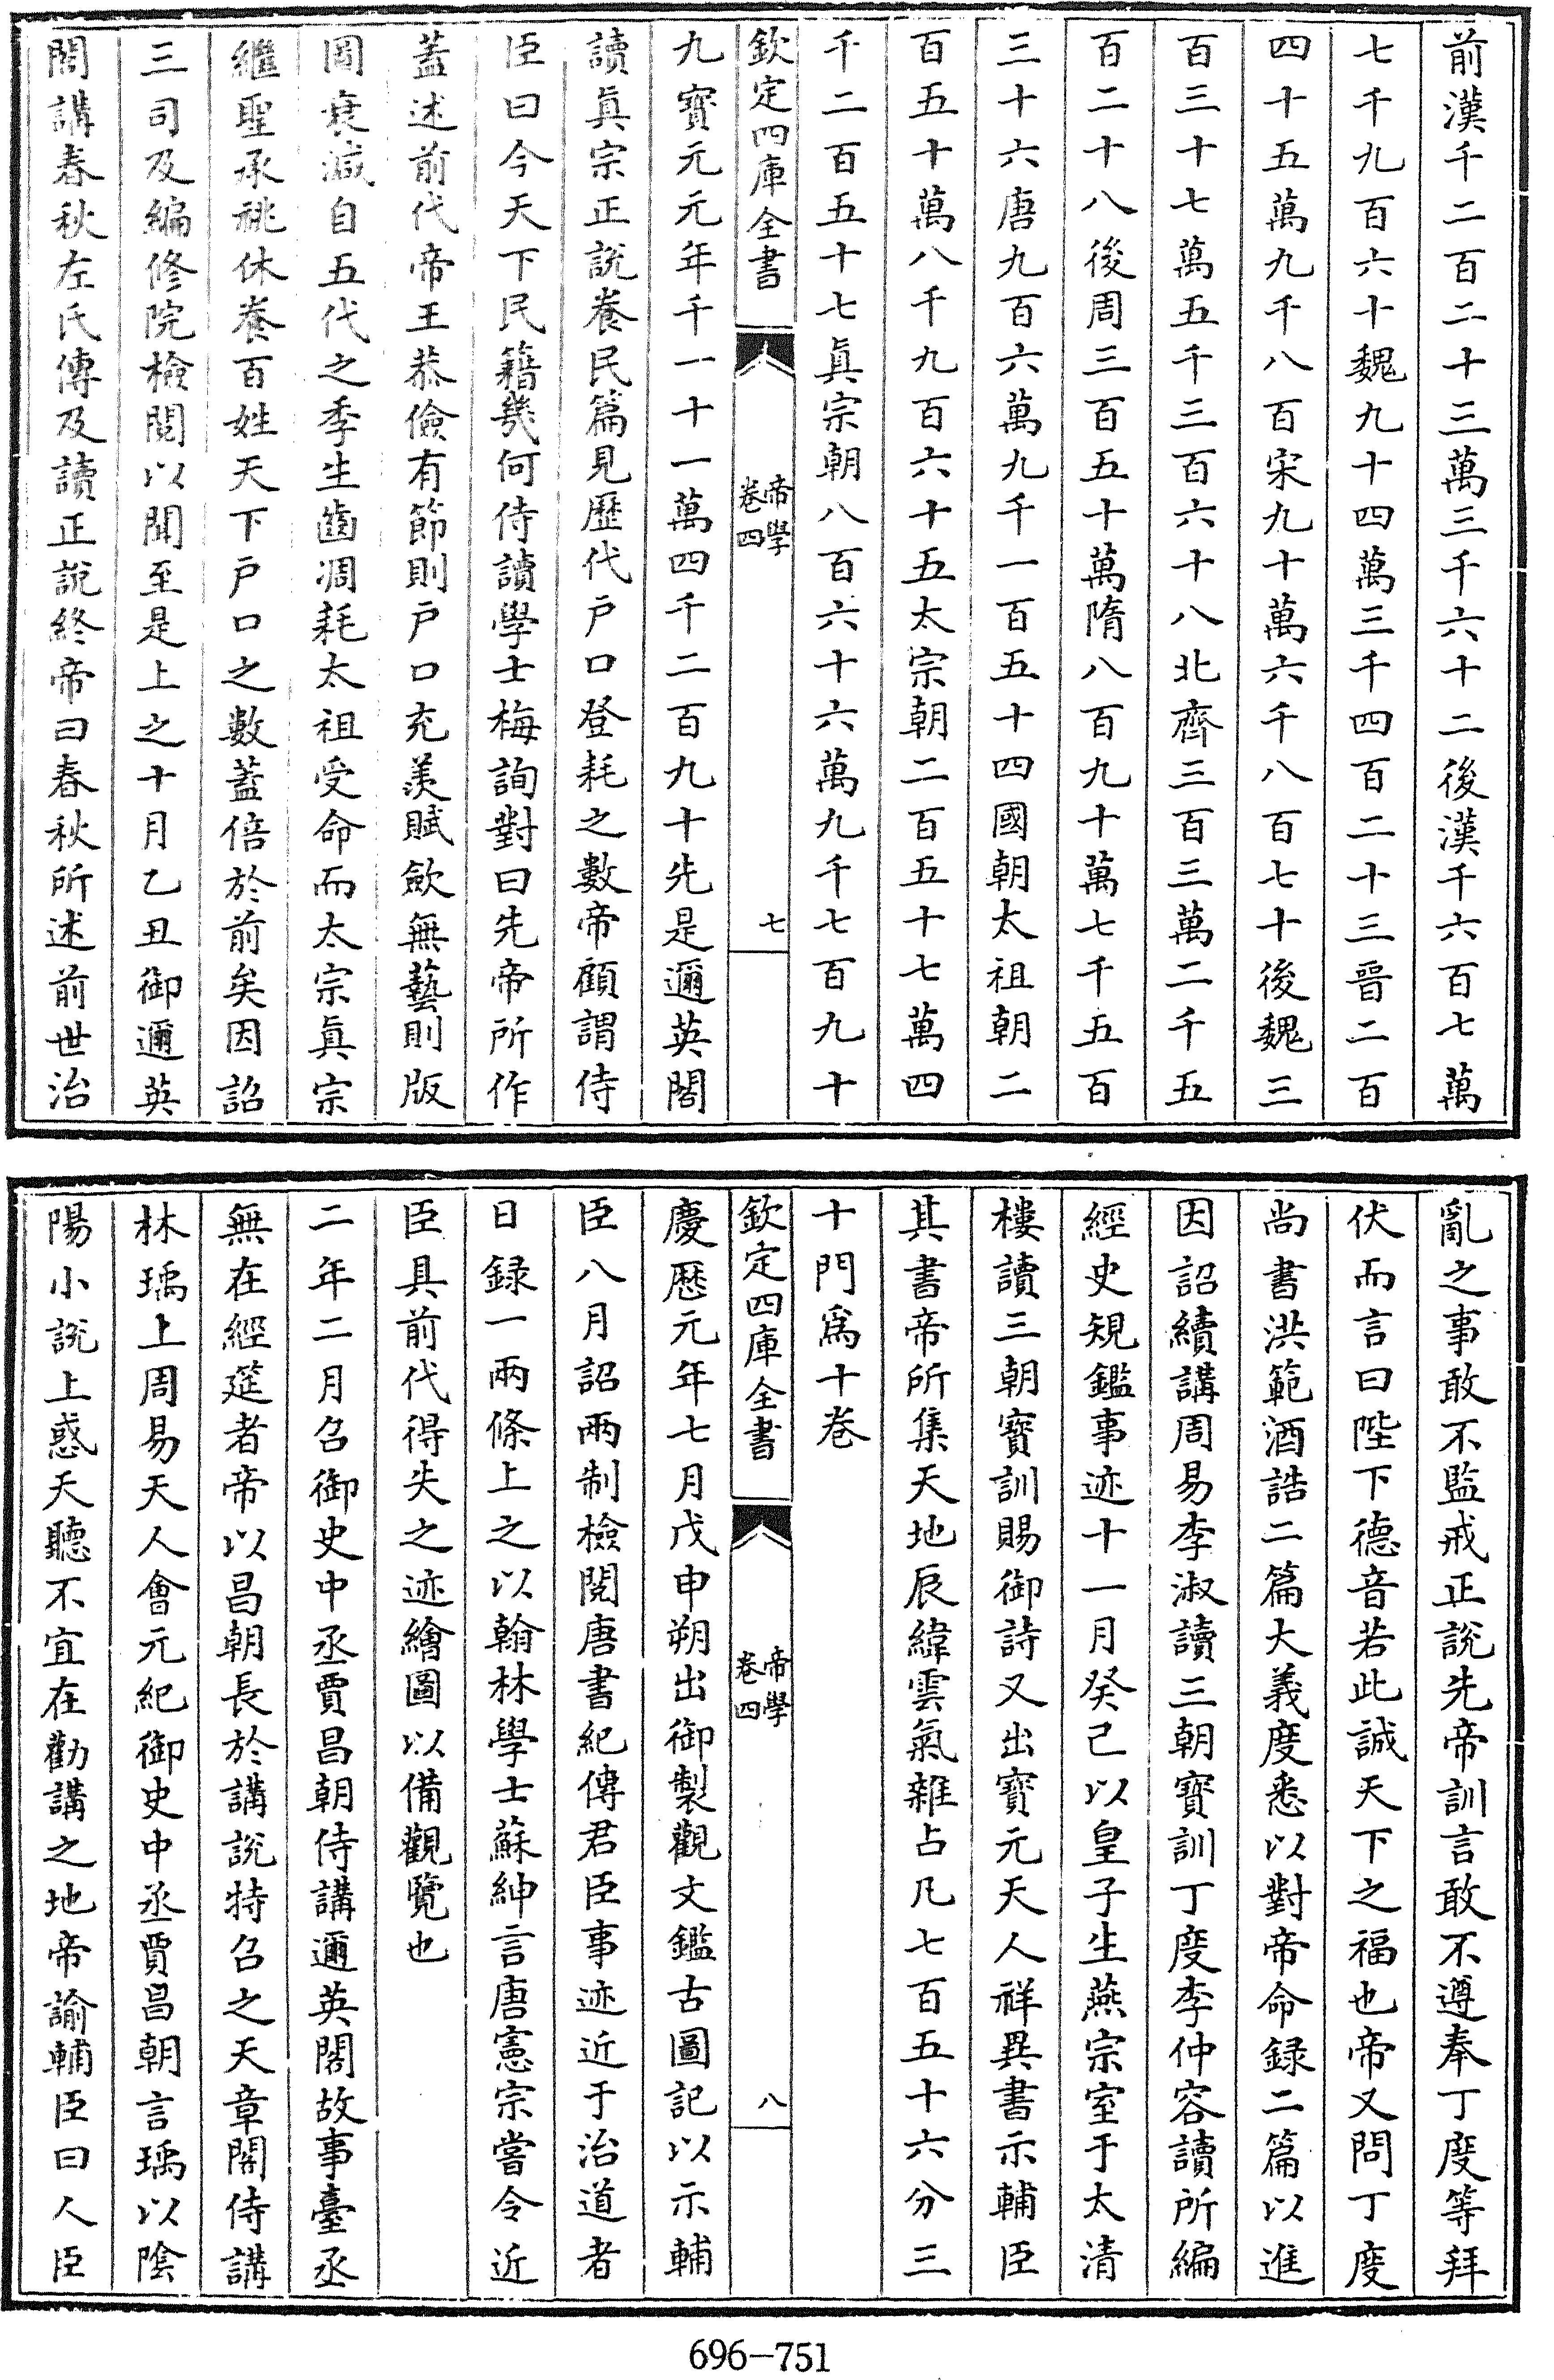 前漢千二百二十三萬三千六十二後漢千六百七萬
七千九百六十魏九十四萬三千四百二十三晉二百
四十五萬九千八百宋九十萬六千八百七十後魏三
百三十七萬五千三百六十八北齊三百三萬二千五
百二十八後周三百五十萬隋八百九十萬七千五百
三十六唐九百六萬九千一百五十四國朝太祖朝二
百五十萬八千九百六十五太宗朝二百五十七萬四
千二百五十七眞宗朝八百六十六萬九千七百九十
欽定四庫全書
帝學
卷四
七
九寶元元年千一十一萬四千二百九十先是邇英閣
讀眞宗正說養民篇見歷代戶口登耗之數帝顧謂侍
臣曰今天下民籍幾何侍讀學士梅詢對曰先帝所作
蓋述前代帝王恭儉有節則戶口充羨賦斂無藝則版
圖衰減自五代之季生齒凋耗太祖受命而太宗眞宗
繼聖承祧休養百姓天下戶口之數蓋倍於前矣因詔
三司及編修院檢閱以聞至是上之十月乙丑御邇英
閣講春秋左氏傳及讀正說終帝曰春秋所述前世治
亂之事敢不監戒正說先帝訓言敢不遵奉丁度等拜
伏而言曰陛下德音若此誠天下之福也帝又問丁度
尚書洪範酒誥二篇大義度悉以對帝命録二篇以進
因詔續講周易李淑讀三朝寶訓丁度李仲容讀所編
經史規鑑事迹十一月癸己以皇子生燕宗室于太清
樓讀三朝寶訓賜御詩又出寶元天人祥異書示輔臣
其書帝所集天地辰緯雲氣雜占凡七百五十六分三
十門爲十卷
欽定四庫全書
帝學
卷四
八
慶歷元年七月戊申朔出御製觀文鑑古圖記以示輔
臣八月詔兩制檢閱唐書紀傳君臣事迹近于治道者
日録一兩條上之以翰林學士蘇紳言唐憲宗嘗令近
臣具前代得失之迹繪圖以備觀覽也
二年二月召御史中丞賈昌朝侍講邇英閣故事臺丞
無在經筵者帝以昌朝長於講說特召之天章閣侍講
林瑀上周易天人會元紀御史中丞賈昌朝言瑀以陰
陽小說上惑天聽不宜在勸講之地帝諭輔臣曰人臣
696-751